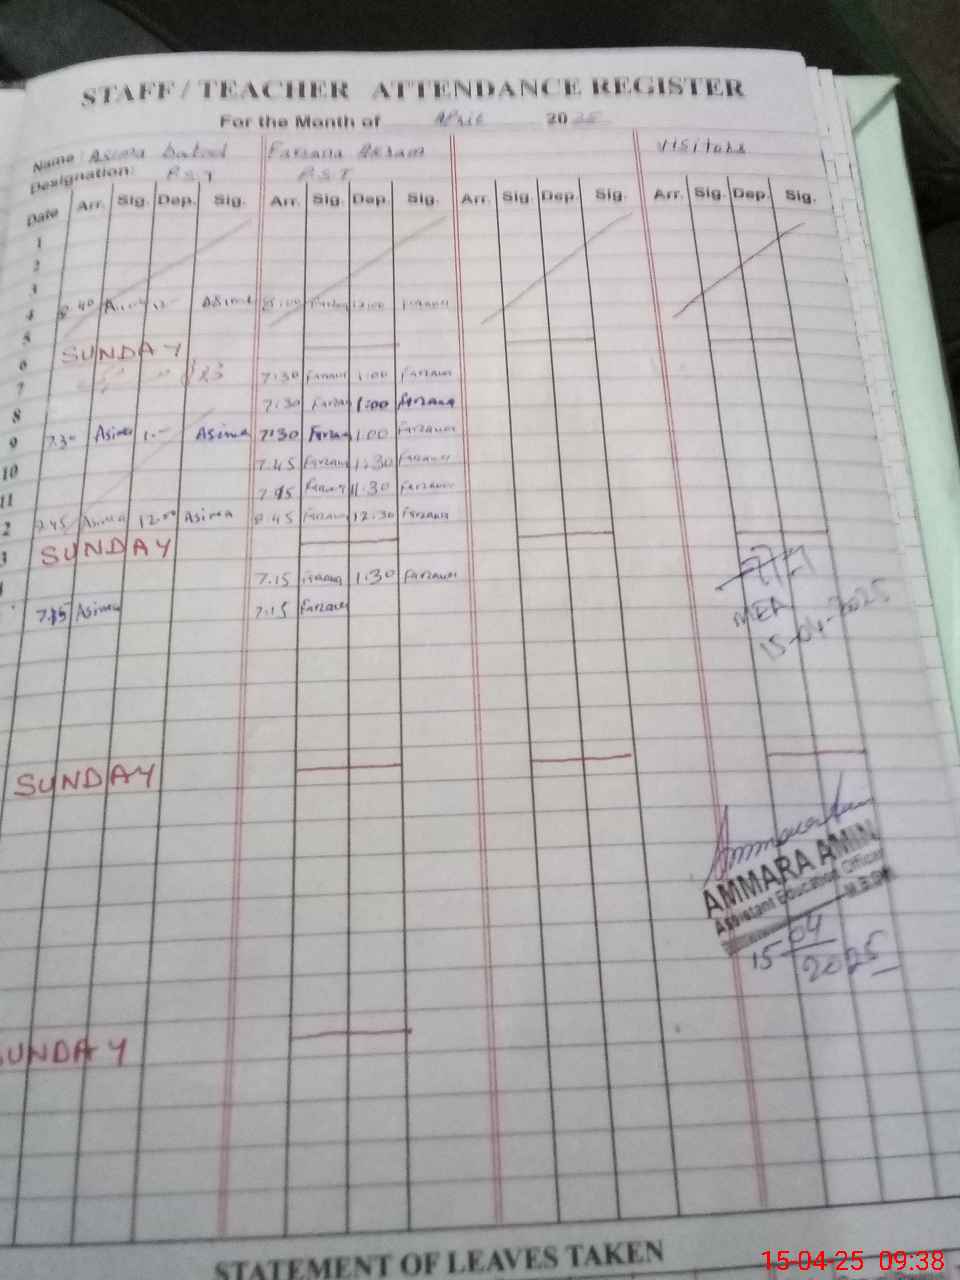 STAFF / TEACHER ATTENDANCE REGISTER
For the Month of April 2025
Name: Asima Farzana Akram Visitors
Designation: P.S.T P.S.T
Date Arr. Sig. Dep. Sig. Arr. Sig. Dep. Sig. Arr. Sig. Dep. Sig. Arr. Sig. Dep. Sig.
1
2
3
4 8.40 Asima
5
6 SUNDAY
7 7:30 Farzana 1:00 Farzana
8 7:30 Farzana 1:00 Farzana
9 7.30 Asima 1.- Asima 7:30 Farzana 1:00 Farzana
10 7.45 Farzana 11:30 Farzana
11 7.45 Farzana 11:30 Farzana
2 7.45 Asima 12.00 Asima 8.45 Farzana 12.30 Farzana
3 SUNDAY
7.15 Farzana 1:30 Farzana
7.15 Asima 7.15 Farzana
MEA
15-04-2025
SUNDAY
AMMARA AMIN
Assistant Education Officer
15-04
2025
SUNDAY
STATEMENT OF LEAVES TAKEN
15-04-25 09:38